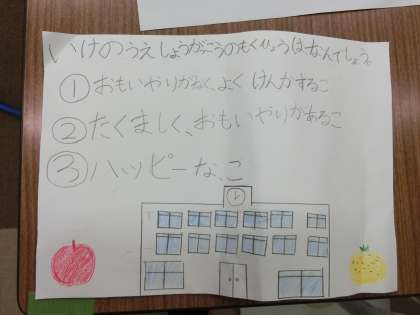 いけのうえしょうがっこうのもくひょうはなんでしょう。
①おもいやりがなく、よく けんかするこ
②たくましく、おもいやりがあるこ
③ハッピーな、こ